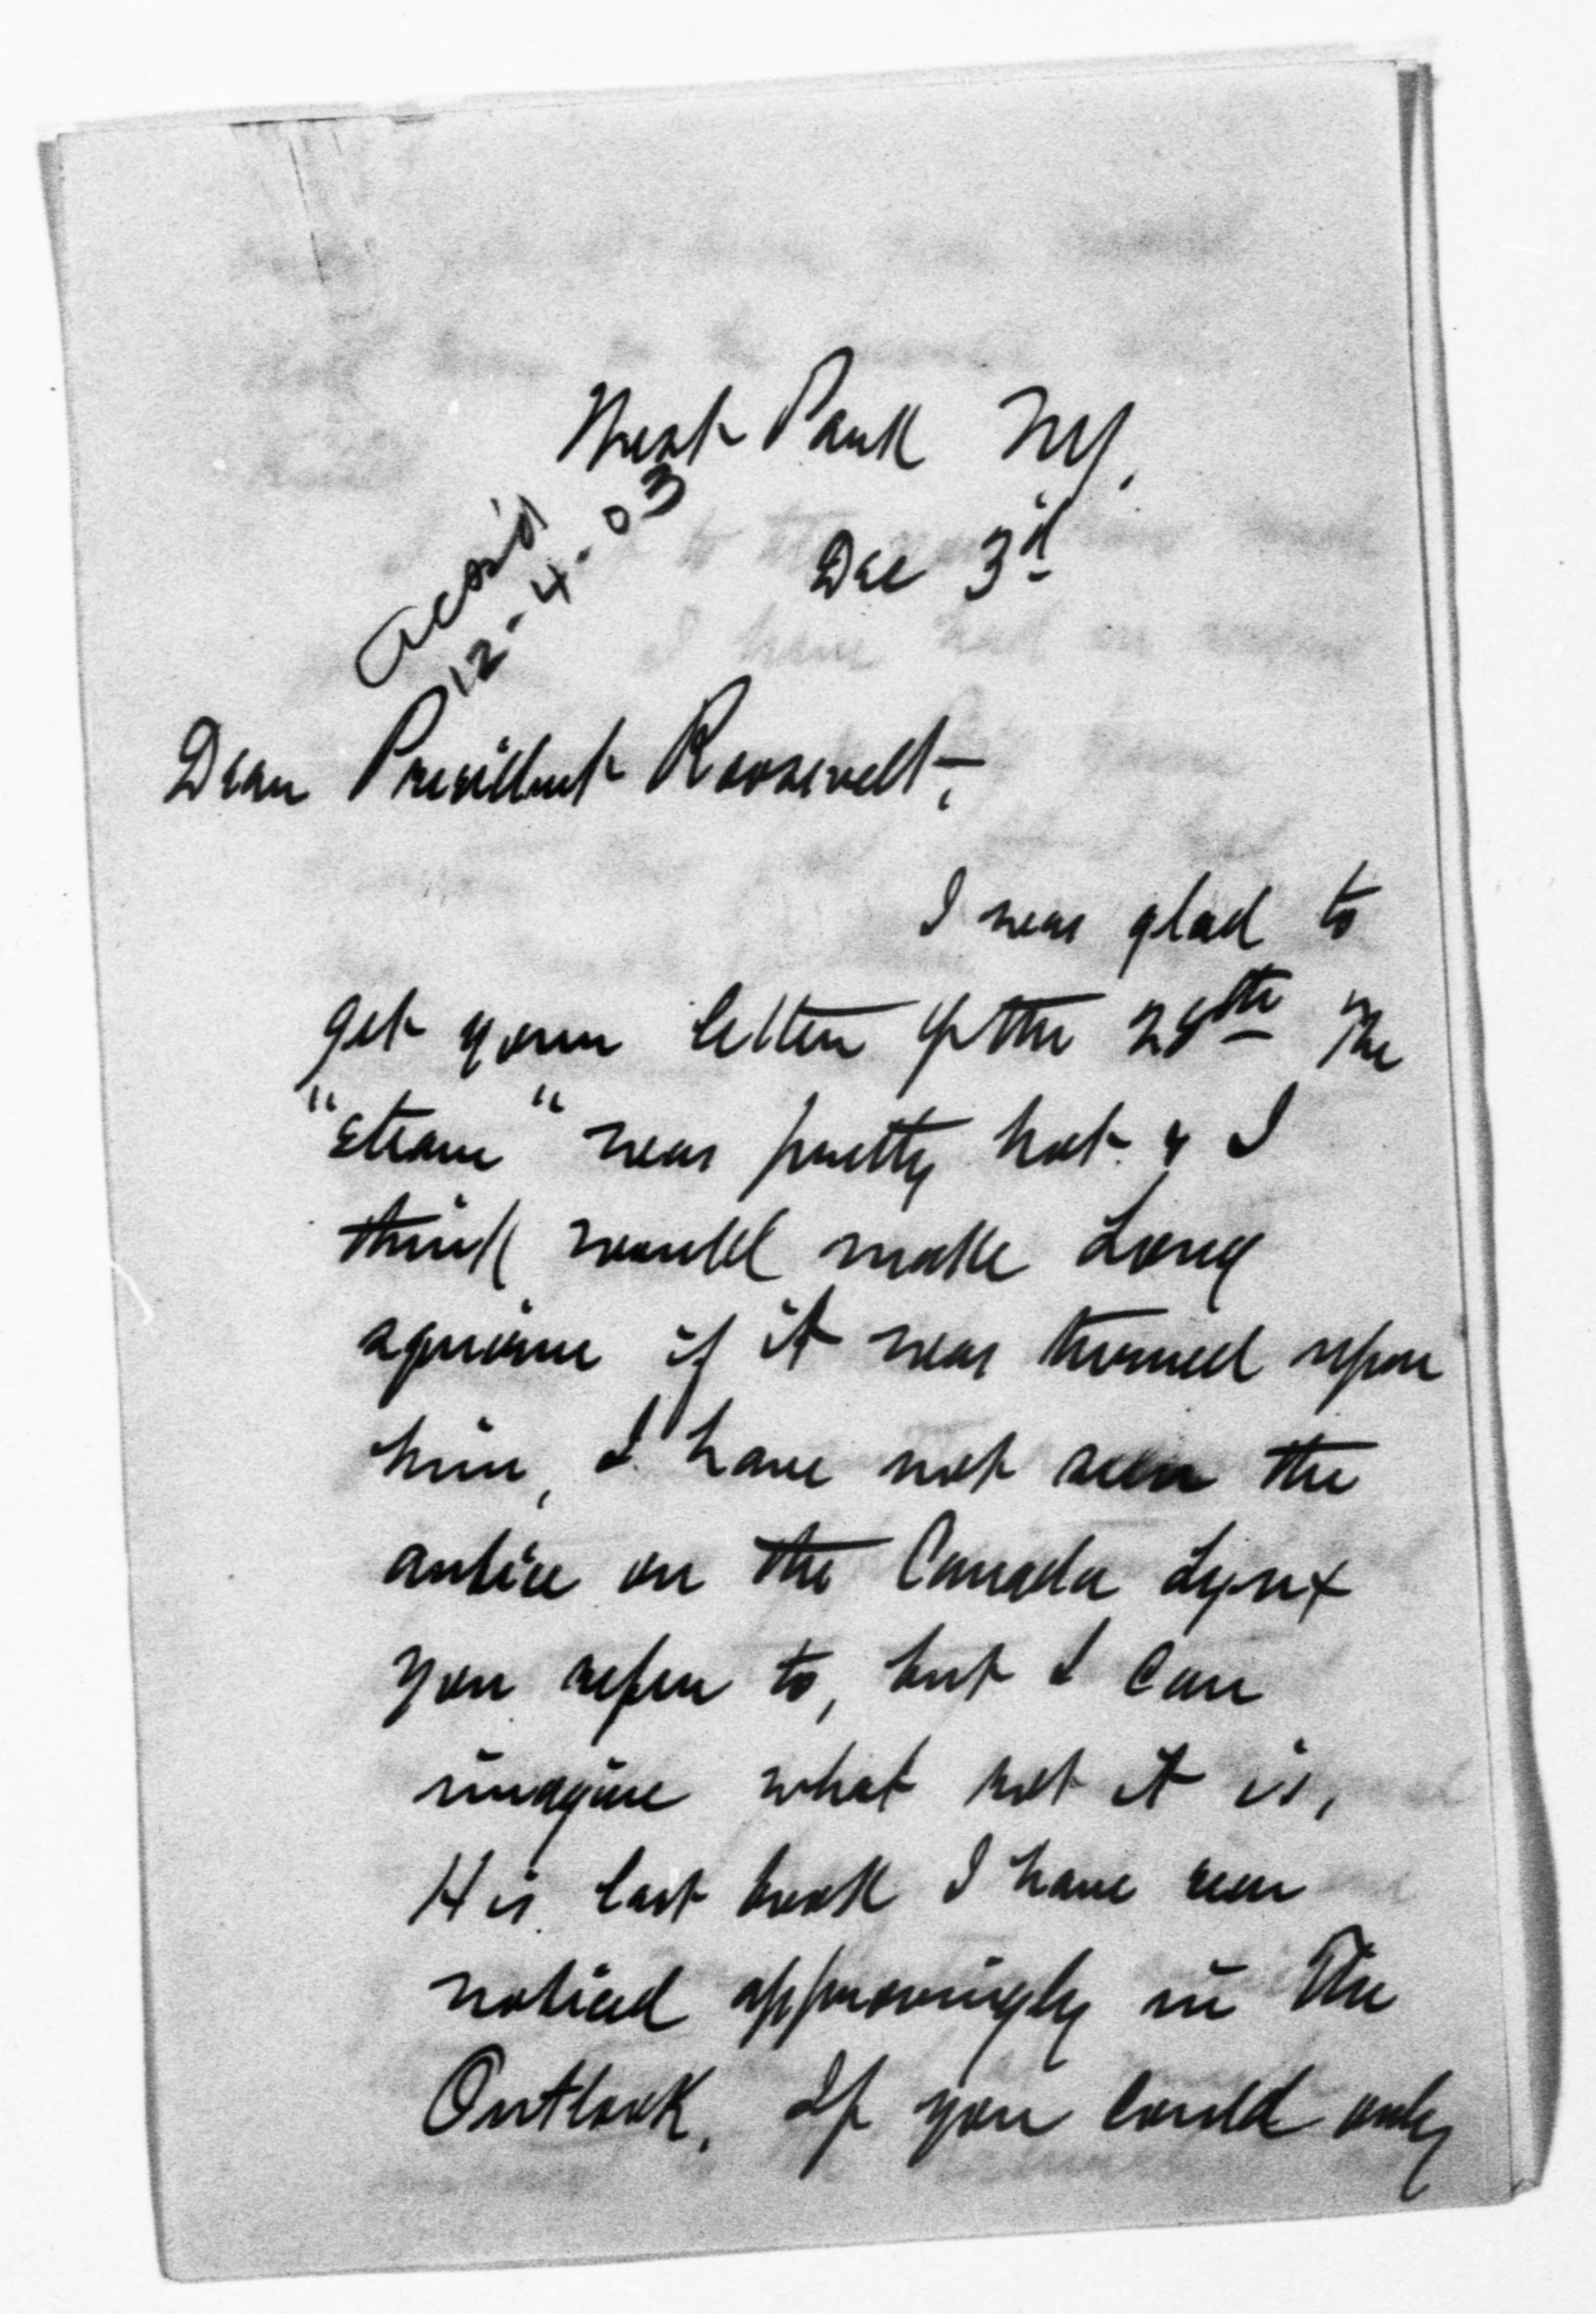 West Park NY.
Dec 3d
Ack'd
12-4-03
Dear President Roosevelt,
I was glad to
get your letter of the 28th The
"steam" was pretty hot & I
think would make Long
squirm if it was turned upon
him, I have not seen the
article on the Canada Lynx
you refer to, but I can
imagine what rot it is,
His last book I have seen
noticed approvingly in The
Outlook. If you could only